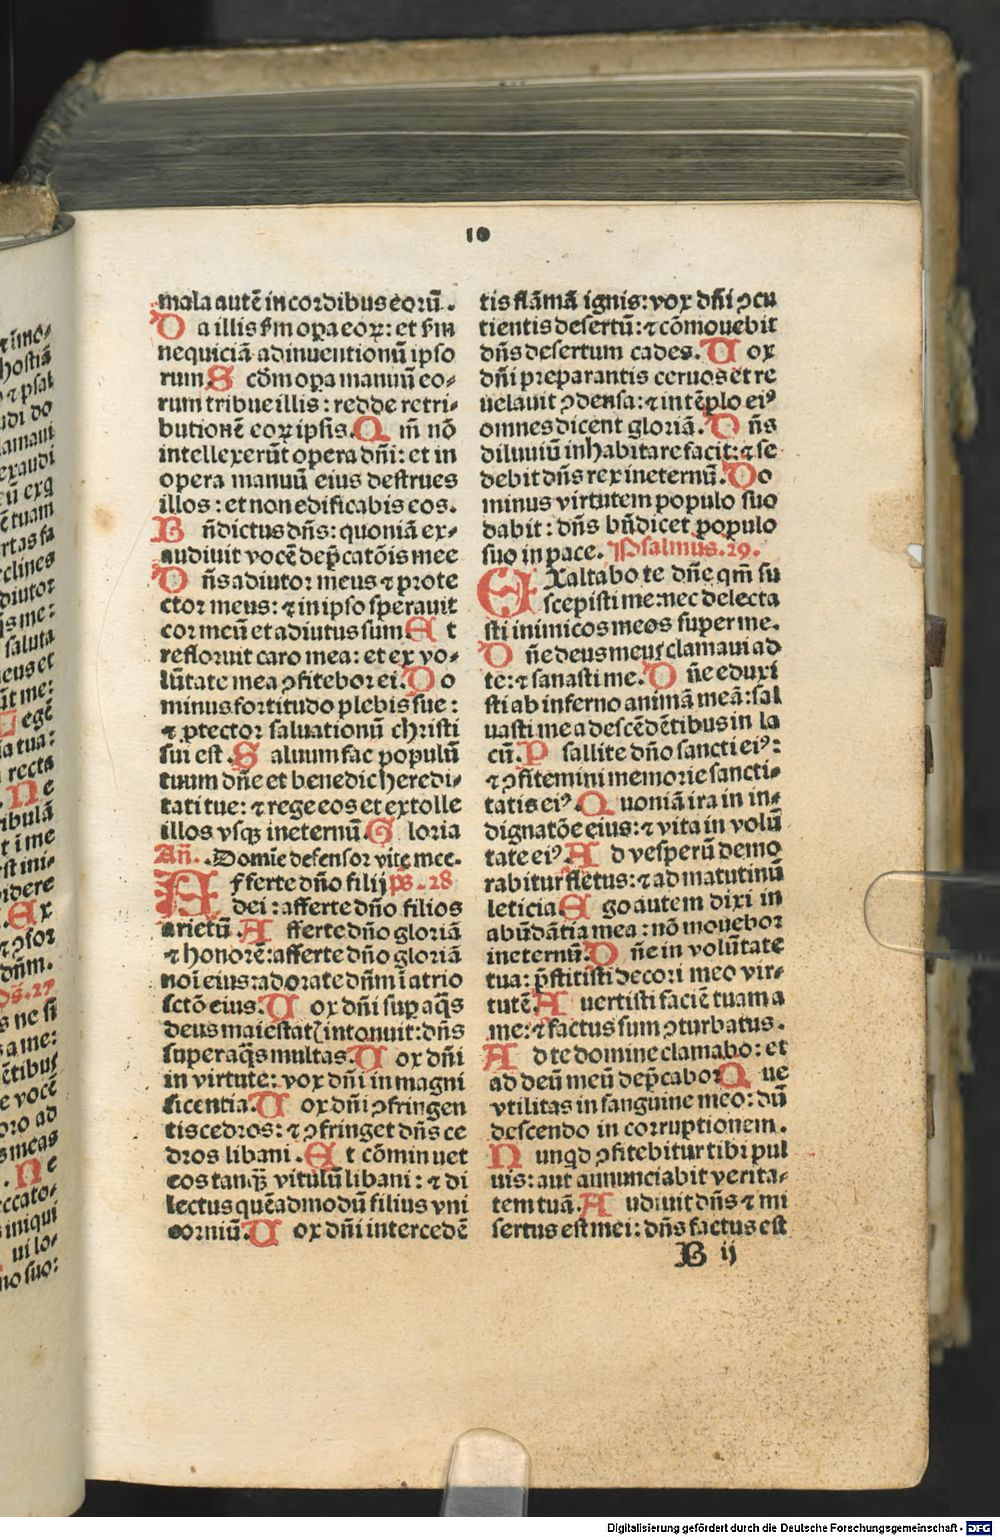 10
mala autē in cordibus eorū.
D a illis ẜm oꝑa eoꝝ: et ẜm
nequiciā adinuentionū ipso
rum. S cd̄m oꝑa manuū eo-
rum tribue illis: redde retri-
butionē eoꝝ ipsis. Q m̄ nō
intellexerūt opera dn̄i: et in
opera manuū eius destrues
illos: et non edificabis eos.
B n̄dictus dn̄s: quoniā ex-
audiuit vocē dep̄catōis mee
D n̄s adiutor meus ⁊ prote
ctor meus: ⁊ in ipso sperauit
cor meū et adiutus sum. E t
refloruit caro mea: et ex vo-
lūtate mea ꝯfitebor ei. D o
minus fortitudo plebis sue:
⁊ ꝓtector saluationū christi
sui est. S aluum fac populū
tuum dn̄e et benedic heredi-
tati tue: ⁊ rege eos et extolle
illos vsqꝫ in eternū. G loria
An̄. Domīe defensor vite mee.
A fferte dn̄o filij ps. 28
dei: afferte dn̄o filios
arietū. A fferte dn̄o gloriā
⁊ honorē: afferte dn̄o gloriā
noī eius: adorate dn̄m ī atrio
sctō eius. U ox dn̄i suꝑ aq̄s
deus maiestatꝭ intonuit: dn̄s
super aq̄s multas. U ox dn̄i
in virtute: vox dn̄i in magni
ficentia. U ox dn̄i ꝯfringen
tis cedros: ⁊ ꝯfringet dn̄s ce
dros libani. E t cōminuet
eos tanqꝫ̄ vitulū libani: ⁊ di
lectus quēadmodū filius vni
corniū. U ox dn̄i intercedē
tis flāmā ignis: vox dn̄i ꝯcu
tientis desertū: ⁊ cōmouebit
dn̄s desertum cades. U ox
dn̄i preparantis ceruos et re
uelauit ꝯdensa: ⁊ in tēplo eiꝰ
omnes dicent gloriā. D n̄s
diluuiū inhabitare facit: ⁊ se
debit dn̄s rex in eternū. D o
minus virtutem populo suo
dabit: dn̄s bn̄dicet populo
suo in pace. Psalmus. 29.
E Xaltabo te dn̄e qm̄ su
scepisti me: nec delecta
sti inimicos meos super me.
D n̄e deus meus clamaui ad
te: ⁊ sanasti me. D n̄e eduxi
sti ab inferno animā meā: sal
uasti me a descēdētibus in la
cū. P sallite dn̄o sancti eiꝰ:
⁊ ꝯfitemini memorie sancti-
tatis eiꝰ. Q uoniā ira in in-
dignatōe eius: ⁊ vita in volū
tate eiꝰ. A d vesperū demo
rabitur fletus: ⁊ ad matutinū
leticia. E go autem dixi in
abūdātia mea: nō mouebor
in eternū. D n̄e in volūtate
tua: p̄stitisti decori meo vir-
tutē. A uertisti faciē tuam a
me: ⁊ factus sum ꝯturbatus.
A d te domine clamabo: et
ad deū meū dep̄cabor. Q ue
vtilitas in sanguine meo: dū
descendo in corruptionem.
N unqd ꝯfitebitur tibi pul
uis: aut annunciabit verita-
tem tuā. A udiuit dn̄s ⁊ mi
sertus est mei: dn̄s factus est
B ij
Digitalisierung gefördert durch die Deutsche Forschungsgemeinschaft - DFG